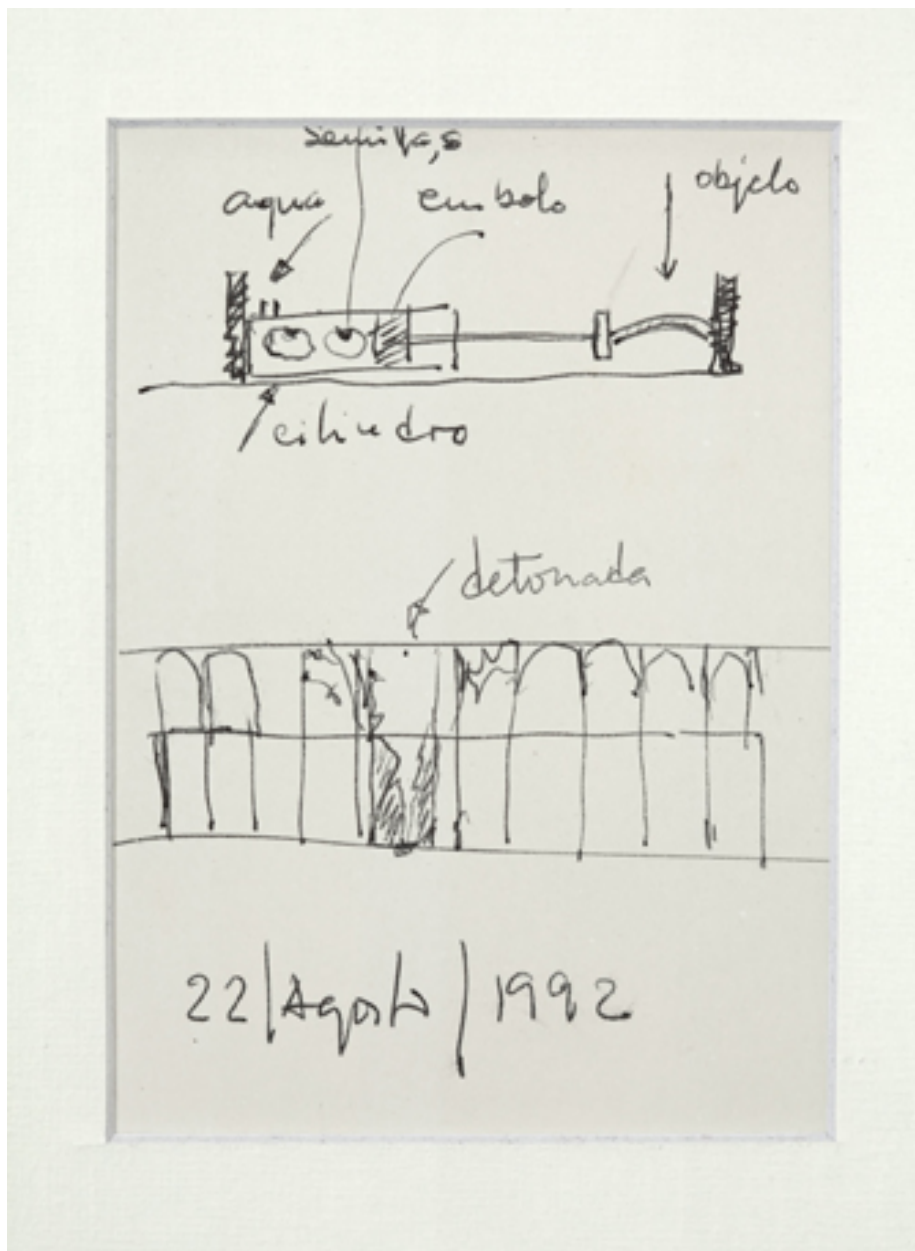 semillas
agua embolo objeto
cilindro
detonada
22/Agosto/1992